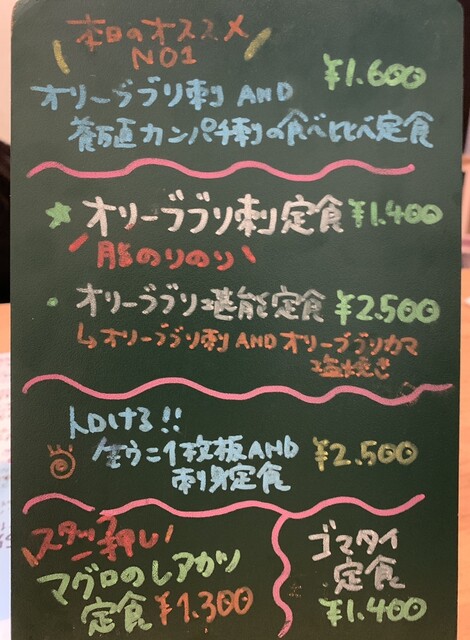 本日のオススメ
NO1
¥1.600
オリーブブリ刺 AND
活〆カンパチ刺の食べ比べ定食
オリーブブリ刺定食 ¥1.400
脂のりのり
オリーブブリ堪能定食 ¥2.500
↳オリーブブリ刺ANDオリーブブリカマ
塩焼き
とろける!!
生ウニ1枚板AND
刺身定食
¥2.500
スタッフ
一押し
マグロのレアカツ
定食 ¥1.300
ゴマタイ
定食
¥1.400